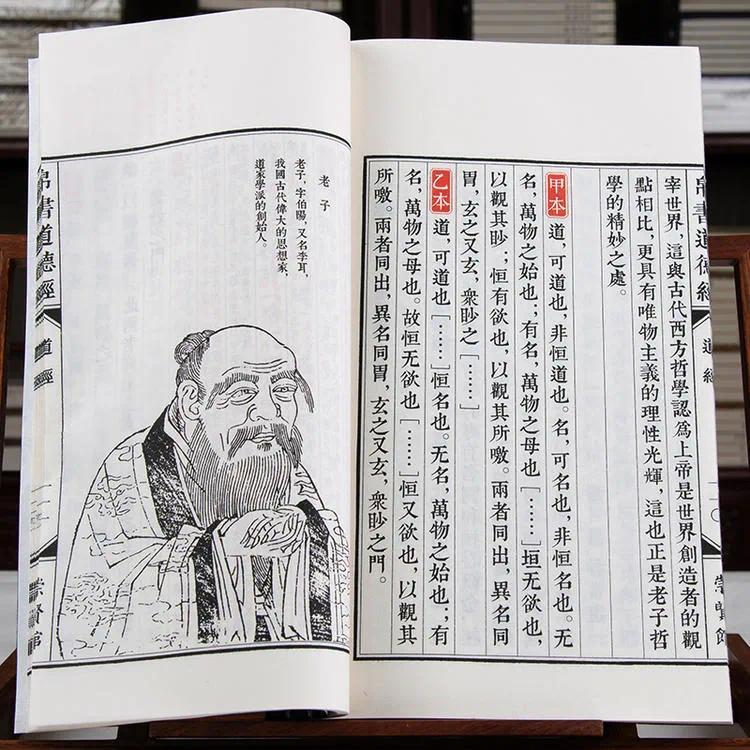 帛書道德經
道經
崇賢館
宰世界，這與古代西方哲學認爲上帝是世界創造者的觀
點相比，更具有唯物主義的理性光輝，這也正是老子哲
學的精妙之處。
甲本 道，可道也，非恒道也。名，可名也，非恒名也。无
名，萬物之始也；有名，萬物之母也［……］垣无欲也，
以觀其眇；恒有欲也，以觀其所噭。兩者同出，異名同
胃，玄之又玄，衆眇之［……］
乙本 道，可道也［……］恒名也。无名，萬物之始也；有
名，萬物之母也。故恒无欲也［……］恒又欲也，以觀其
所噭。兩者同出，異名同胃，玄之又玄，衆眇之門。
老子
老子，字伯陽，又名李耳，
我國古代偉大的思想家，
道家學派的創始人。
帛書道德經
道經
崇賢館